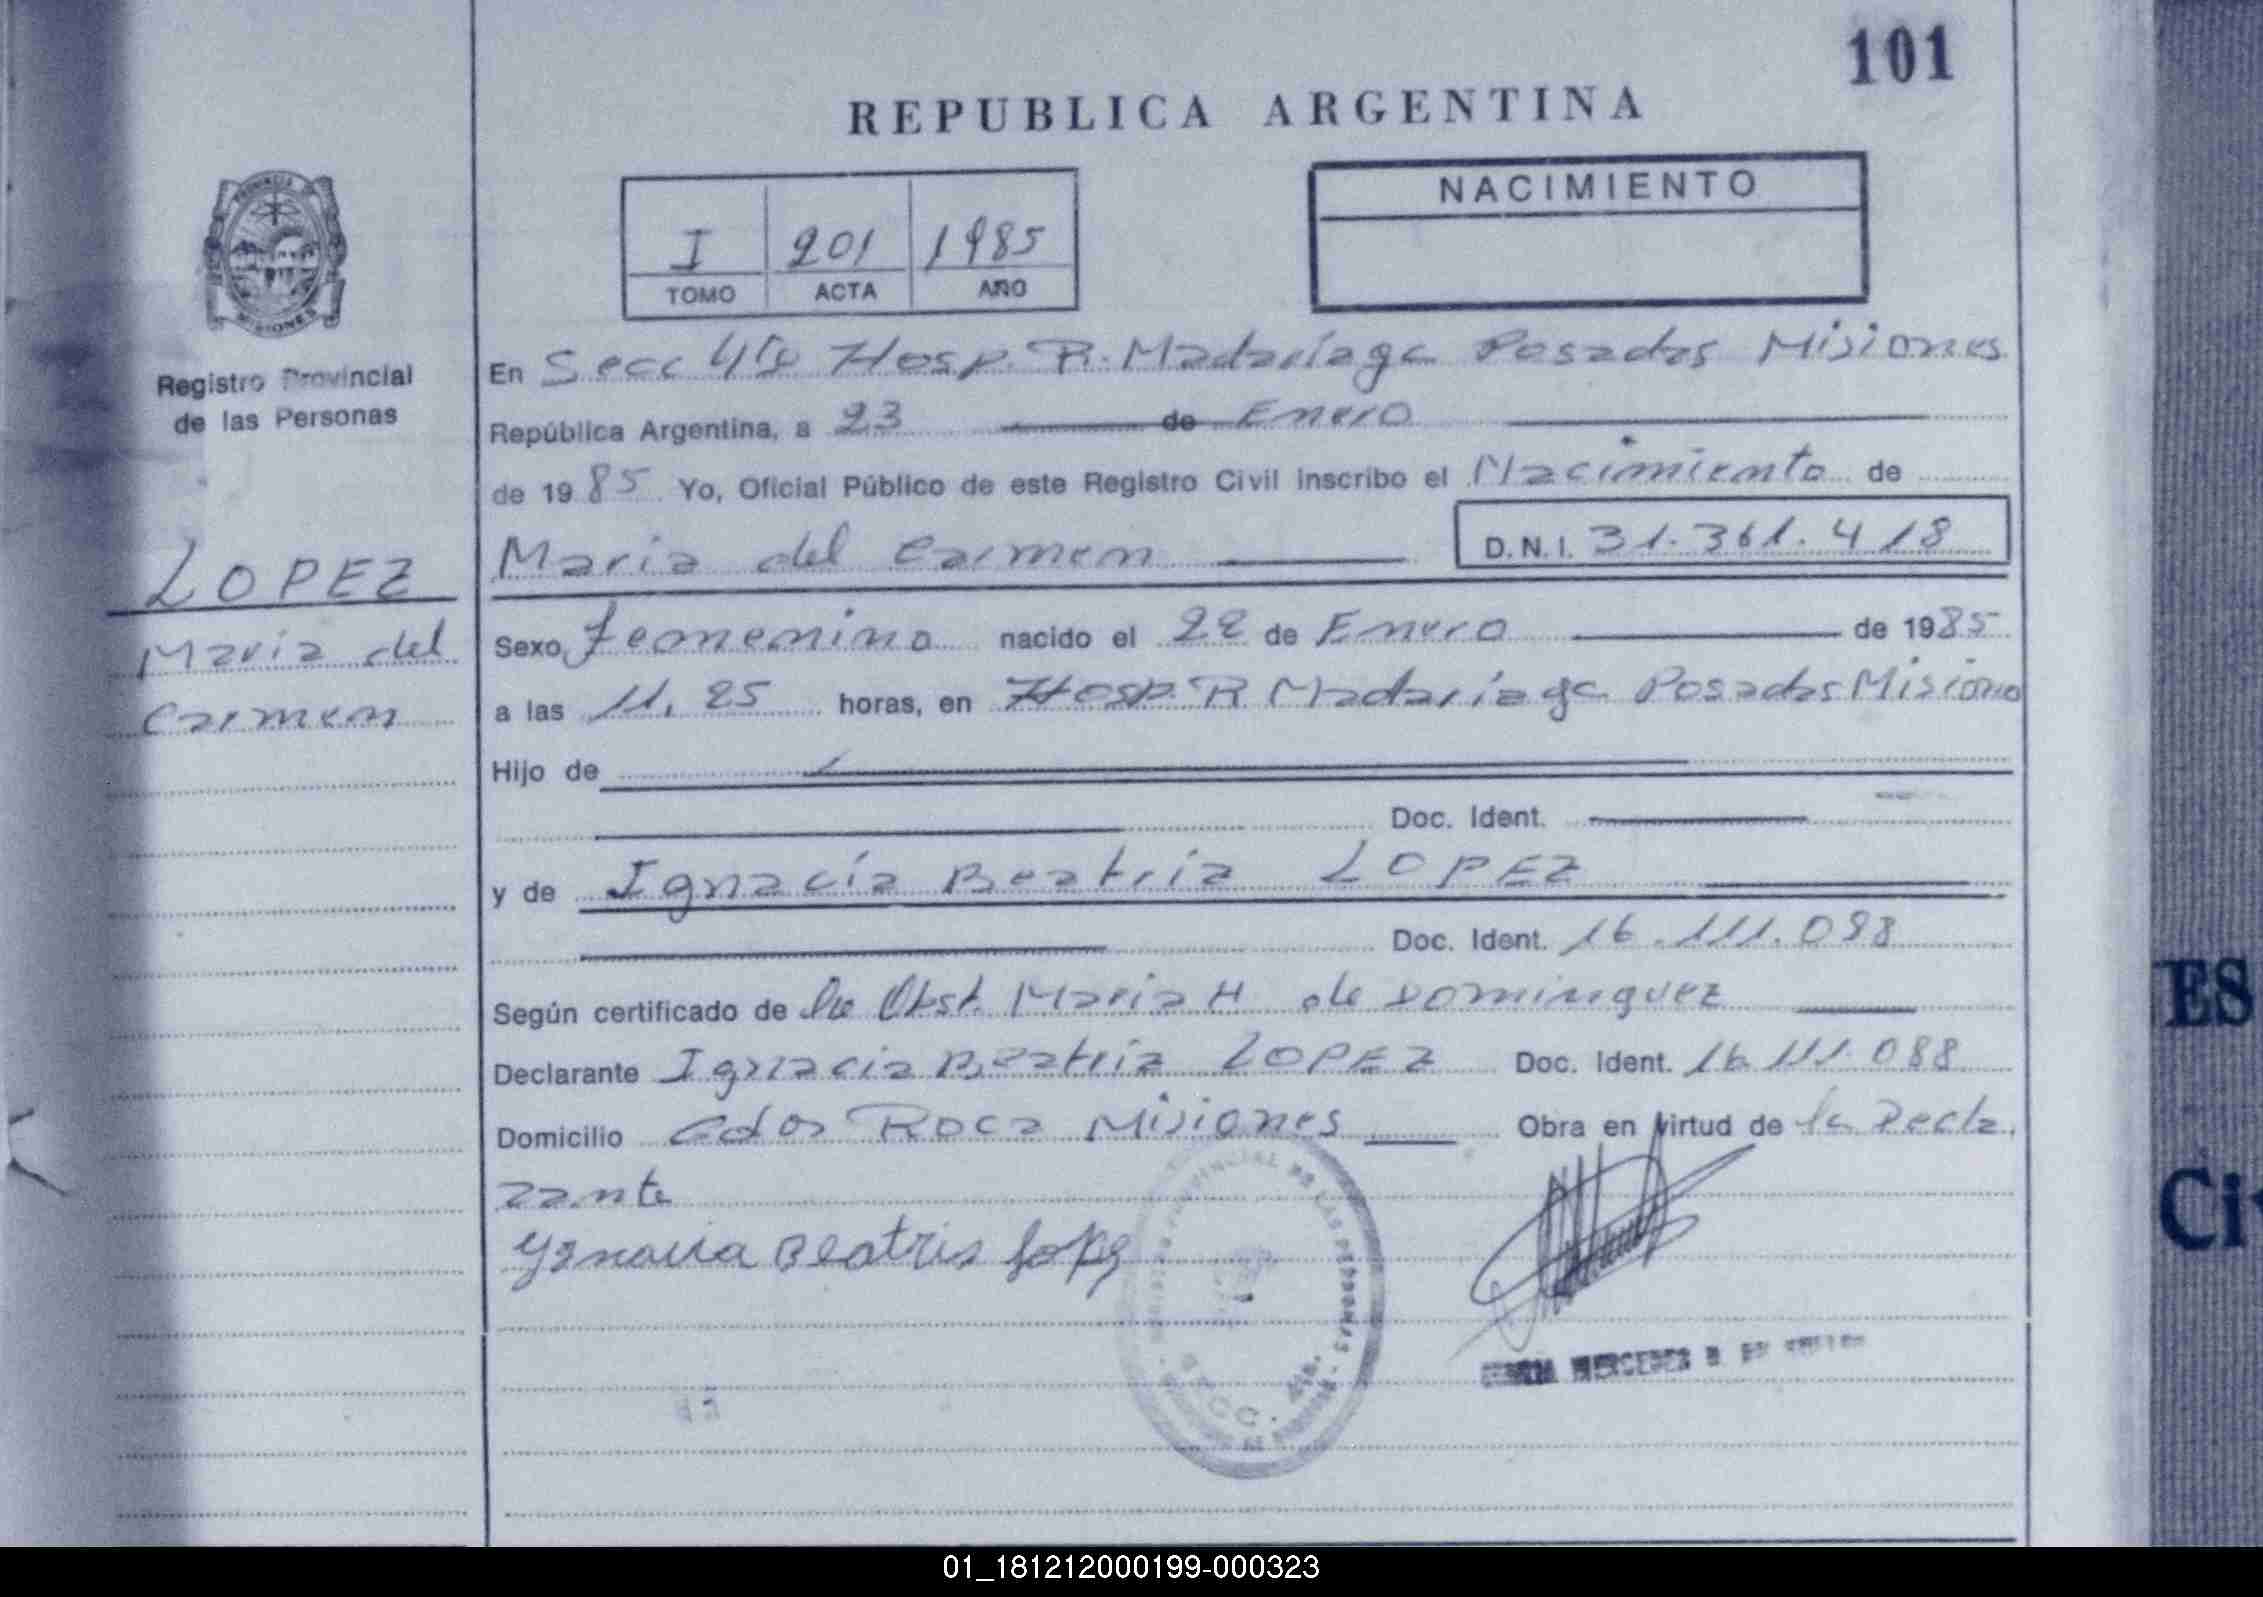 101
REPUBLICA ARGENTINA
PROVINCIA DE
MISIONES
I 201 1985
TOMO ACTA AÑO
NACIMIENTO
Registro Provincial
de las Personas
LOPEZ
Maria del
Carmen
En Secc 4ta Hosp. R. Madariaga Posadas Misiones
República Argentina, a 23 de Enero
de 19 85 Yo, Oficial Público de este Registro Civil inscribo el Nacimiento de
Maria del Carmen D.N.I. 31.361.418
Sexo femenino nacido el 22 de Enero de 1985
a las 11,25 horas, en Hosp. R Madariaga Posadas Misiones
Hijo de
Doc. Ident.
y de Ignacia Beatriz LOPEZ
Doc. Ident. 16.111.088
Según certificado de la Obst. Maria H de Dominguez
Declarante Ignacia Beatriz LOPEZ Doc. Ident. 16.111.088
Domicilio Gdor Roca Misiones Obra en virtud de la Decla
rante
Ygnacia Beatris Lopez
PROVINCIAL DE LAS PERSONAS
MERCEDES
ES
Ci
01_181212000199-000323